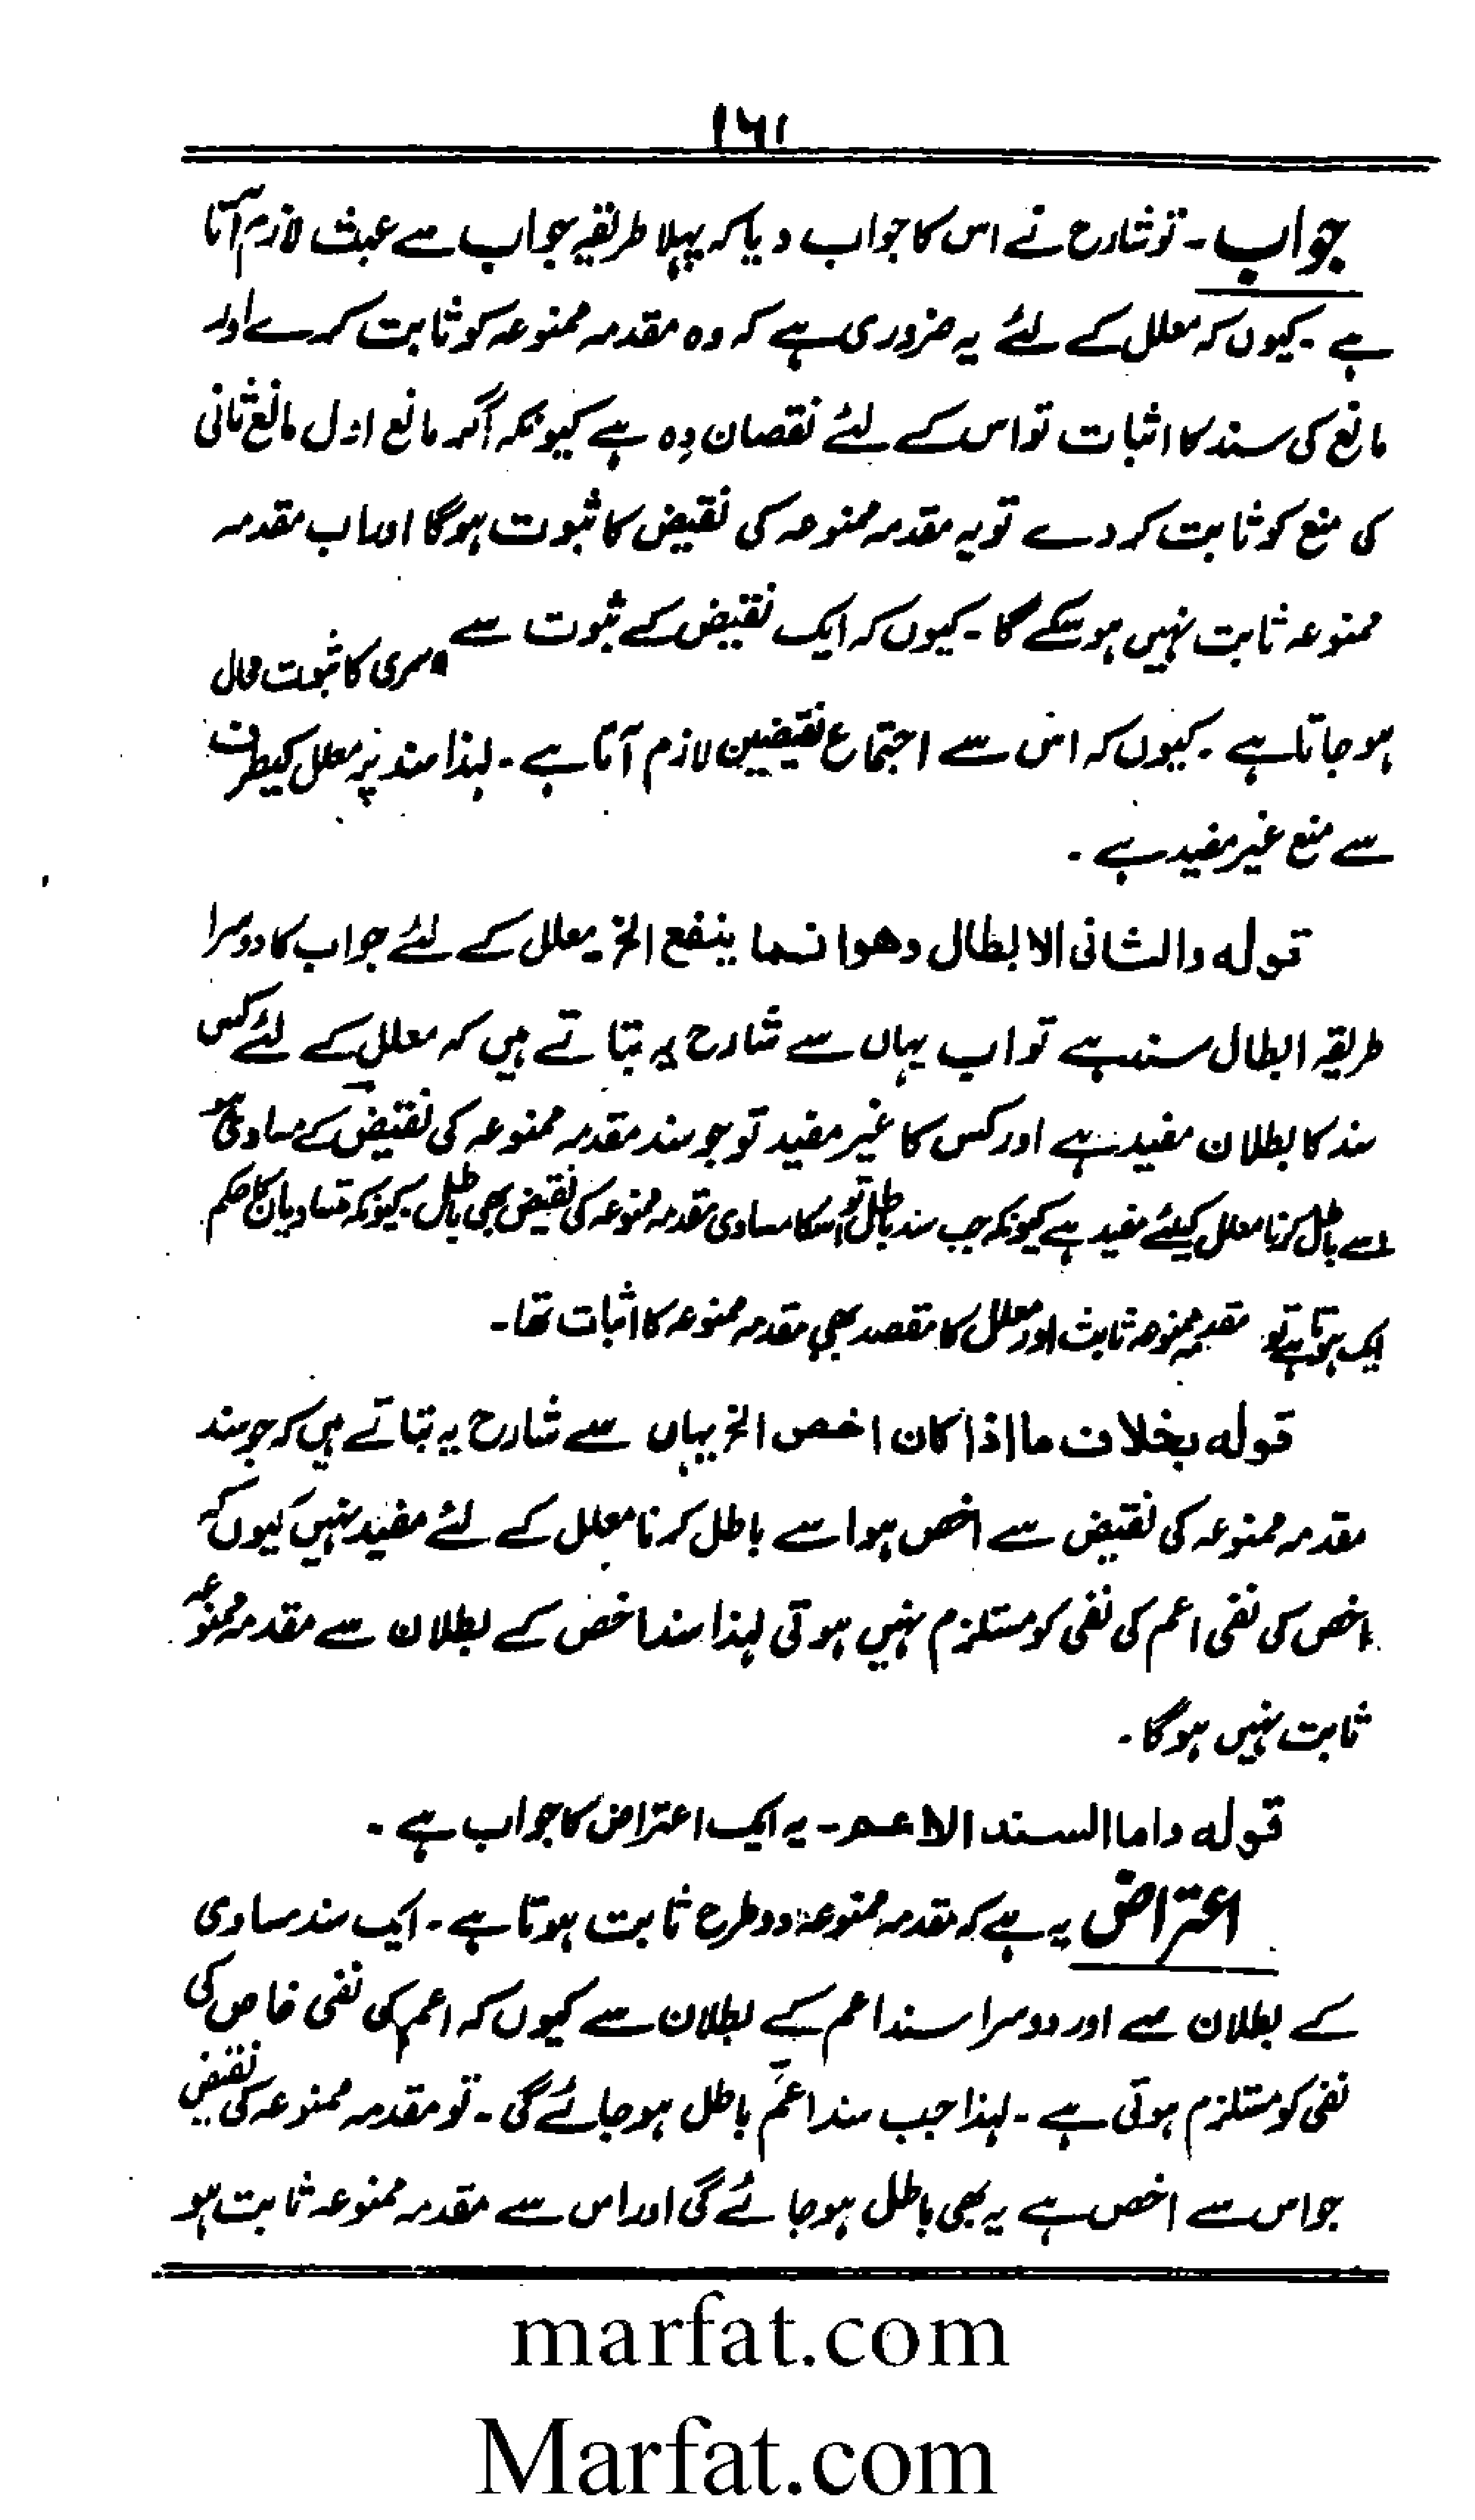 ۱۶۱
جواب۔ تو شارح نے اس کا جواب دیا کہ پہلا طریقہ جواب سے عبث لازم آتا
ہے۔ کیوں کہ معلل کے لئے یہ ضروری ہے کہ وہ مقدمہ ممنوعہ کو ثابت کرے اور
مانع کی سند کا اثبات تو اس کے لئے نقصان دِہ ہے کیونکہ اگر مانع اول مانع ثانی
کی منع کو ثابت کر دے تو یہ مقدمہ ممنوعہ کی نقیض کا ثبوت ہوگا اور اب مقدمہ
ممنوعہ ثابت نہیں ہو سکے گا۔ کیوں کہ ایک نقیض کے ثبوت سے دوسری کا ثبوت محال
ہو جاتا ہے۔ کیوں کہ اس سے اجتماع نقیضین لازم آتا ہے۔ لہذا سند پر معلل کیطرف
سے منع غیر مفید ہے۔
قولہ والثانی الابطال وھو انما ینفع الخ معلل کے لئے جواب کا دوسرا
طریقہ ابطال سند ہے تو اب یہاں سے شارح یہ بتاتے ہیں کہ معلل کے لئے کس
سند کا بطلان مفید ہے اور کس کا غیر مفید تو جو سند مقدمہ ممنوعہ کی نقیض کے مساوی ہو
اسے باطل کرنا معلل کیلئے مفید ہے کیونکہ جب سند باطل تو اسکا مساوی مقدمہ ممنوعہ کی نقیض بھی باطل۔ کیونکہ متساویان کا حکم
ایک ہوتا ہے تو مقدمہ ممنوعہ ثابت اور معلل کا مقصد بھی مقدمہ ممنوعہ کا اثبات تھا۔
قولہ بخلاف ما اذا کان اخص الخ یہاں سے شارح یہ بتاتے ہیں کہ جو سند
مقدمہ ممنوعہ کی نقیض سے اخص ہو اسے باطل کرنا معلل کے لئے مفید نہیں کیوں کہ
اخص کی نفی اعم کی نفی کو مستلزم نہیں ہوتی لہذا سند اخص کے بطلان سے مقدمہ ممنوعہ
ثابت نہیں ہوگا۔
قولہ واما السند الاعم۔ یہ ایک اعتراض کا جواب ہے۔
اعتراض یہ ہے کہ مقدمہ ممنوعہ دو طرح ثابت ہوتا ہے۔ ایک سند مساوی
کے بطلان سے اور دوسرا سند اعم کے بطلان سے کیوں کہ اعم کی نفی خاص کی
نفی کو مستلزم ہوتی ہے۔ لہذا جب سند اعم باطل ہو جائے گی۔ تو مقدمہ ممنوعہ کی نقیض
جو اس سے اخص ہے یہ بھی باطل ہو جائے گی اور اس سے مقدمہ ممنوعہ ثابت ہو
marfat.com
Marfat.com